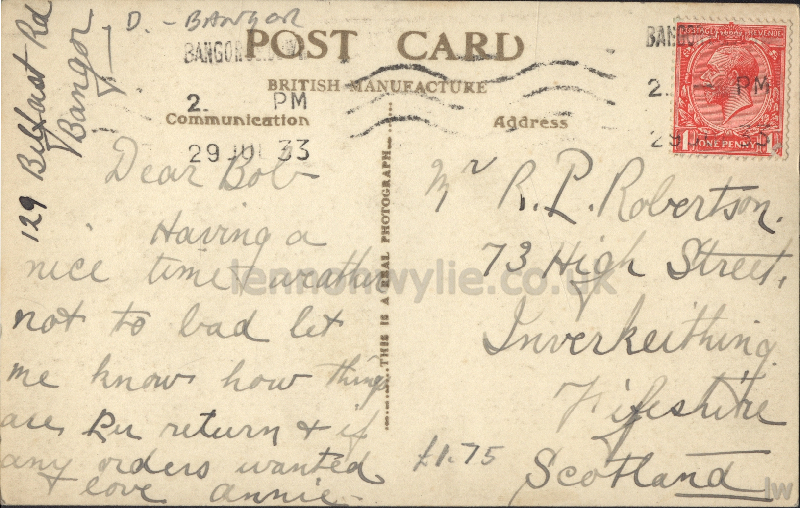 D. - BANGOR
129 Belfast Rd
Bangor
POST CARD
BRITISH MANUFACTURE
Communication
Address
BANGOR
2. PM
29 JUL 33
BANGO
2. PM
29 JUL 33
POSTAGE REVENUE
ONE PENNY
Dear Bob
Having a
nice time weather
not to bad let
me know how things
are Per return & if
any orders wanted
love annie
THIS IS A REAL PHOTOGRAPH
Mr R. P. Robertson.
73 High Street,
Inverkeithing
Fifeshire
Scotland
£1.75
lennonwylie.co.uk
lw